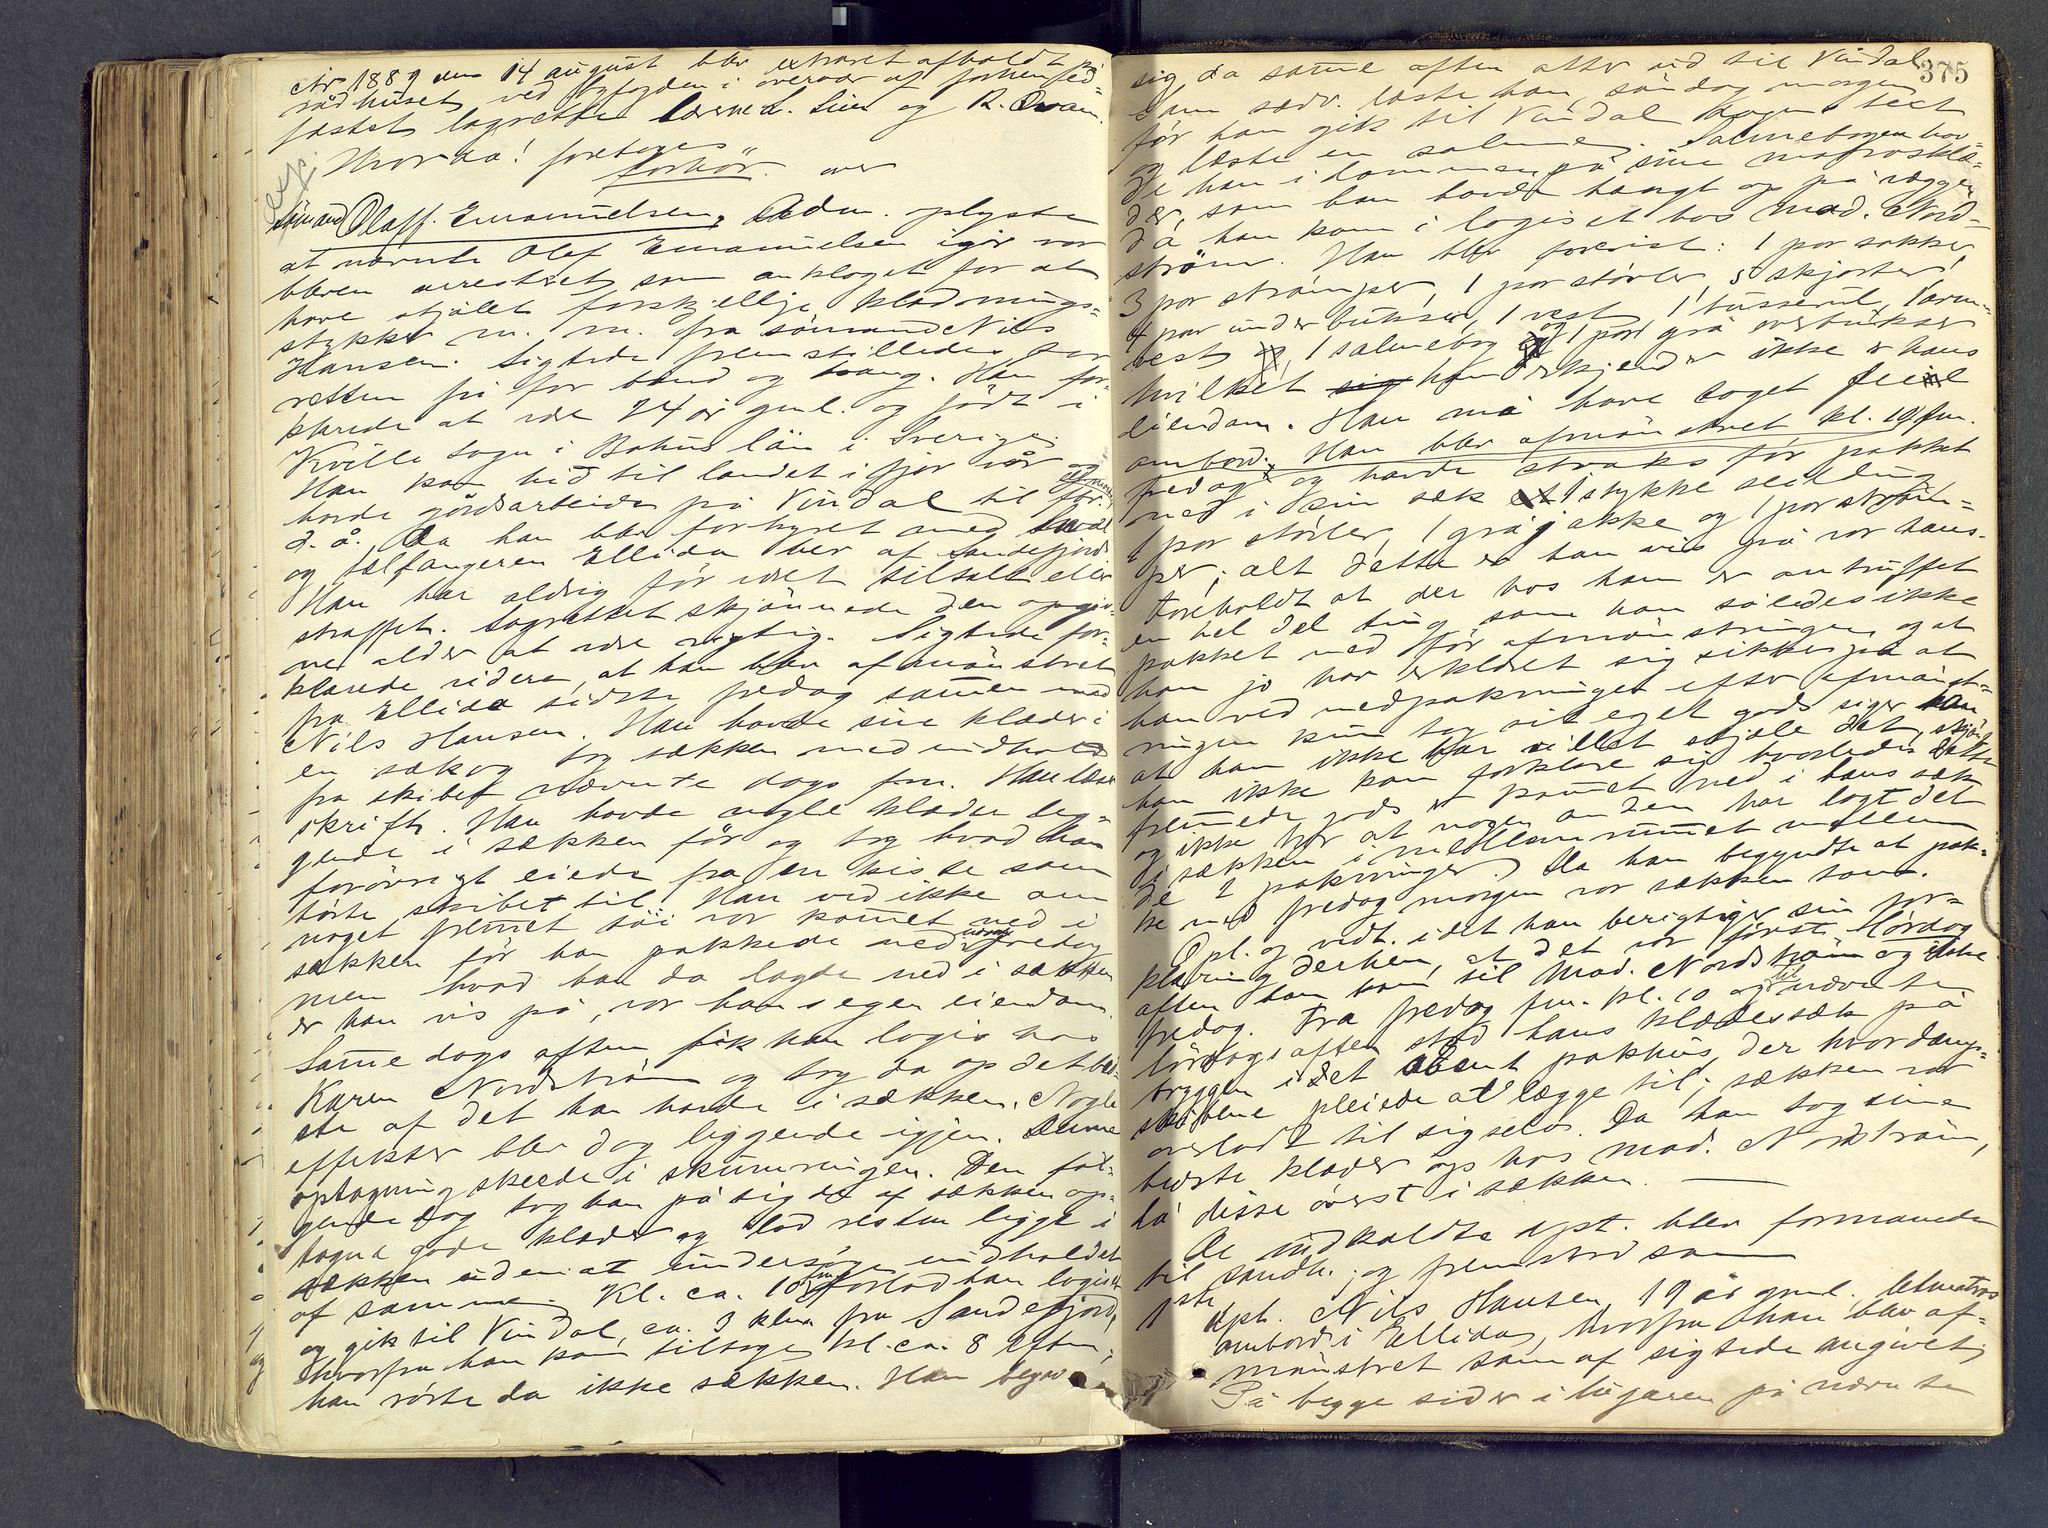 År 1889 den 14 august blev extraret afholdt på
rådhuset ved byfogden i overvær af forhen ed-
fæstet lagrette: Lierend. Lien og R. Svan.
Hvorda! foretoges
forhör over
sömand Olaff Emanuelsen. Adm. oplyste
at nævnte Olef Emanuelsen igår var
bleven arresteret som anklaget for at
have stjålet forskjellige klædnings-
stykker m. m. fra sömand Nils
Hansen. Sigtede fremstilledes for
retten fri for bånd og tvang. Han for-
klarede at være 24 år gml. og født i
Kville sogn i Bohus län i Sverige.
Han kom hid til landet i fjor vår og
havde gårdsarbeide på Vindal til
d. å., da han blev forhyret med hval
og sælfangeren Ellida her af Sandefjord.
Han har aldrig før været tiltalt eller
straffet. Lagrettet skjönnede den opgiv-
ne alder at være rigtig. Sigtede for-
klarede videre, at han blev afmönstret
fra Ellida sidste fredag samen med
Nils Hansen. Han havde sine klæder i
en sæk og tog sækken med indhold
fra skibet nævnte dags fm. Han læser
skrift. Han havde nogle klæder lig-
gende i sækken før og tog hvad han
forövrigt eiede fra en kiste som
hørte skibet til. Han ved ikke om
noget fremet töi var komet ned i
sækken før han pakkede ned fredag
men hvad han da lagde ned i sækken
er han vis på, var hans egen eiendom.
Same dags aften fik han logis hos
Karen Nordström og tog da op det bed-
ste af det han havde i sækken. Nogle
effekter blev dog liggende igjen. Denne
optagning skeede i skumringen. Den føl-
gende dag tog han på sig de af sækken op-
tagne gode klæder og lod resten ligge i
sækken uden at undersøge indholdet
af samme. Kl. ca. 10 fm forlod han logiset
og gik til Vindal, ca. 3 klm fra Sandefjord,
hvorfra han kom tilbage kl. ca. 8 eftm,
han rörte da ikke sækken. Han begav
375
sig da samme aften atter ud til Vindal.
før han gik til Vindal
og læste en salme. Salmebogen hav-
de han i lommen på sine matrosklæ-
der, som han havde hængt op på væggen
da han kom i logiset hos mad. Nord-
ström. Han blev forevist: 1 par sokker,
3 par strømper, 1 par støvler, 5 skjorter,
4 par underbukser, 1 vest, 1 busserul,
1 salmebog og 1 par grå overbukser
hvilket han erkjender ikke er hans
eiendom. Han må have taget feil
ombord. Han blev afmönstret kl. 10 fm.
fredag og havde straks før pakket
ned i sin sæk 1 stykke seildug
1 par støvler, 1 grå jakke og 1 par strøm-
per; alt dette er han vis på var hans.
Foreholdt at der hos ham er antruffet
en hel del ting som han således ikke
pakket ned før afmönstringen og at
han jo har erklæret sig sikker på at
han ved nedpakninget efter afmönst-
ringen kun tog sit eget gods siger han
at han ikke har villet stjæle det, skjønt
han ikke kan forklare sig hvorledes dette
fremede gods er komet ned i hans sæk
og ikke tror at nogen anden har lagt det
i sækken i mellemrummet mellem
de 2 pakninger. Da han begyndte at pak-
ke ned fredag morgen var sækken tom.
Opl. og vedt. idet han berigtiger sin for-
klaring derhen, at det var først lördag
aften han kom til Mad. Nordström og ikke
fredag. Fra fredag fm. kl. 10 og til nævnte
lördags aften stod hans klædessæk på
bryggen i et åbent pakhus, der hvor damp-
skibene pleiede at lægge til; sækken var
overladt til sig selv. Da han tog sine
bedste klæder op hos mad. Nordström,
lå disse øverst i sækken.
De indkaldte vpt. blev formanede
til sandh. og fremstod som
1ste vpt. Nils Hansen, 19 år gml. letmatros
ombord i Ellida, hvorfra han blev af-
mönstret som af sigtede angivet.
På begge sider i lugaren på nævnte